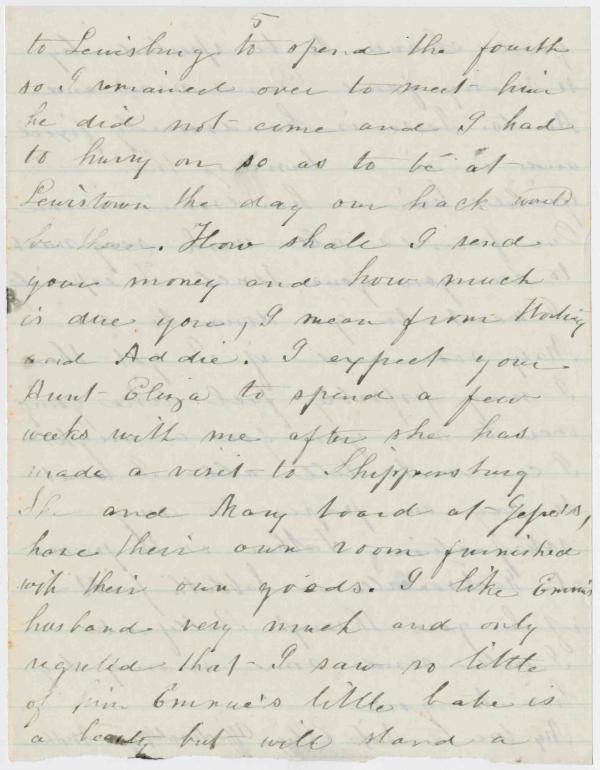 5
to Lewisburg to spend the fourth
so I remained over to meet him
he did not come and I had
to hurry on so as to be at
Lewistown the day our hack would
be there. How shall I send
your money and how much
is due you, I mean from
and Addie. I expect your
Aunt Eliza to spend a few
weeks with me after she has
made a visit to Shippensburg
and Mary board at
have their own room furnished
with their own goods. I like Emmie's
husband very much and only
regreted that I saw so little
of him Emmie's little babe is
a beauty but will stand a